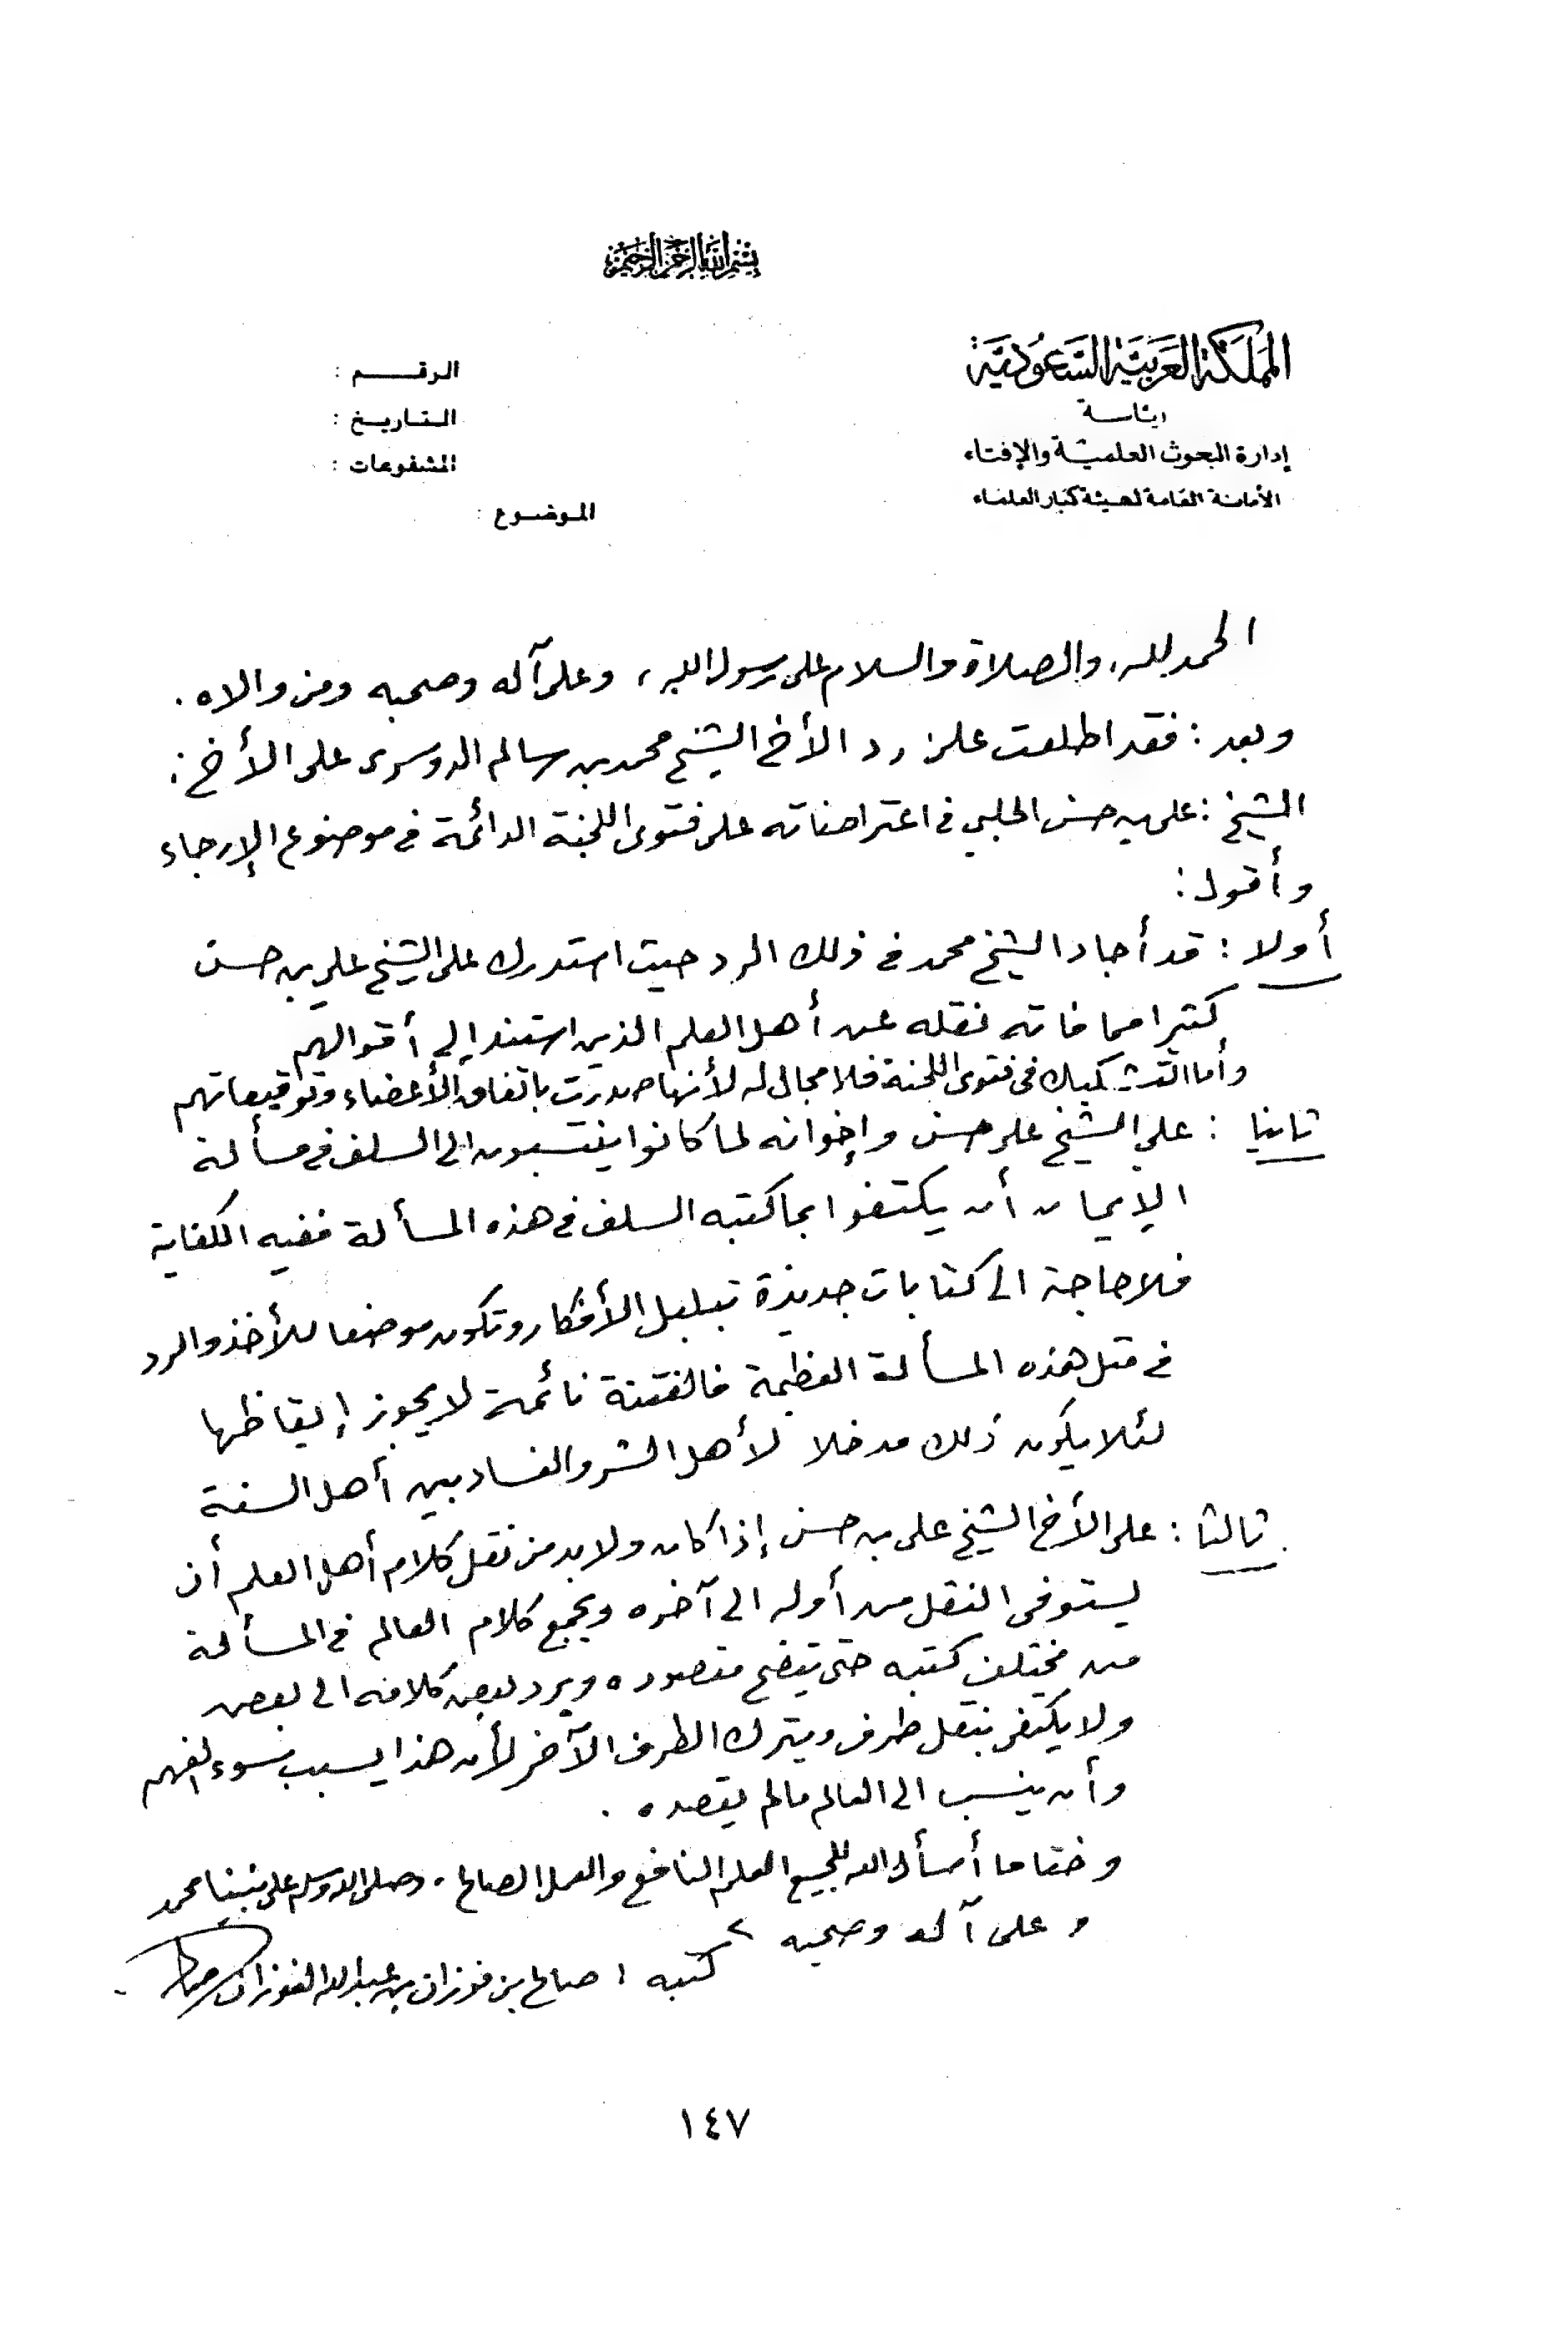 بسم الله الرحمن الرحيم
المملكة العربية السعودية
رئاسة
إدارة البحوث العلمية والإفتاء
الأمانة العامة لهيئة كبار العلماء
الرقم :
التاريخ :
المشفوعات :
الموضوع :
الحمد لله، والصلاة والسلام على رسول الله، وعلى آله وصحبه ومن والاه .
وبعد : فقد اطلعت على رد الأخ الشيخ محمد بن سالم الدوسرى على الأخ :
الشيخ : على بن حسن الحلبي في اعتراضاته على فتوى اللجنة الدائمة في موضوع الإرجاء
وأقول :
أولا : قد أجاد الشيخ محمد في ذلك الرد حيث استدرك على الشيخ علي بن حسن
كثيرا مما فاته نقله عن أهل العلم الذين استند إلى أقوالهم
وأما التشكيك في فتوى اللجنة فلا مجال له لأنها صدرت باتفاق الأعضاء وتوقيعاتهم
ثانيا : على الشيخ على حسن وإخوانه لما كانوا ينتسبون الى السلف في مسألة
الإيمان أن يكتفوا بما كتبه السلف في هذه المسألة ففيه الكفاية
فلا حاجة الى كتابات جديدة تبلبل الأفكار وتكون موضعا للأخذ والرد
في مثل هذه المسألة العظيمة فالفتنة نائمة لا يجوز إيقاظها
لئلا يكون ذلك مدخلا لأهل الشر والفساد بين أهل السنة
ثالثا : على الأخ الشيخ على بن حسن إذا كان ولا بد من نقل كلام أهل العلم أن
يستوفى النقل من أوله الى آخره ويجمع كلام العالم في المسألة
من مختلف كتبه حتى يتضح مقصوده ويرد بعض كلامه الى بعض
ولا يكتفى بنقل طرف ويترك الطرف الآخر لأن هذا يسبب سوء الفهم
وأن ينسب الى العالم مالم يقصده .
وختاما أسأل الله للجميع العلم النافع والعمل الصالح . وصلى الله وسلم على نبينا محمد
وعلى آله وصحبه
كتبه : صالح بن فوزان بن عبدالله الفوزان
١٤٧